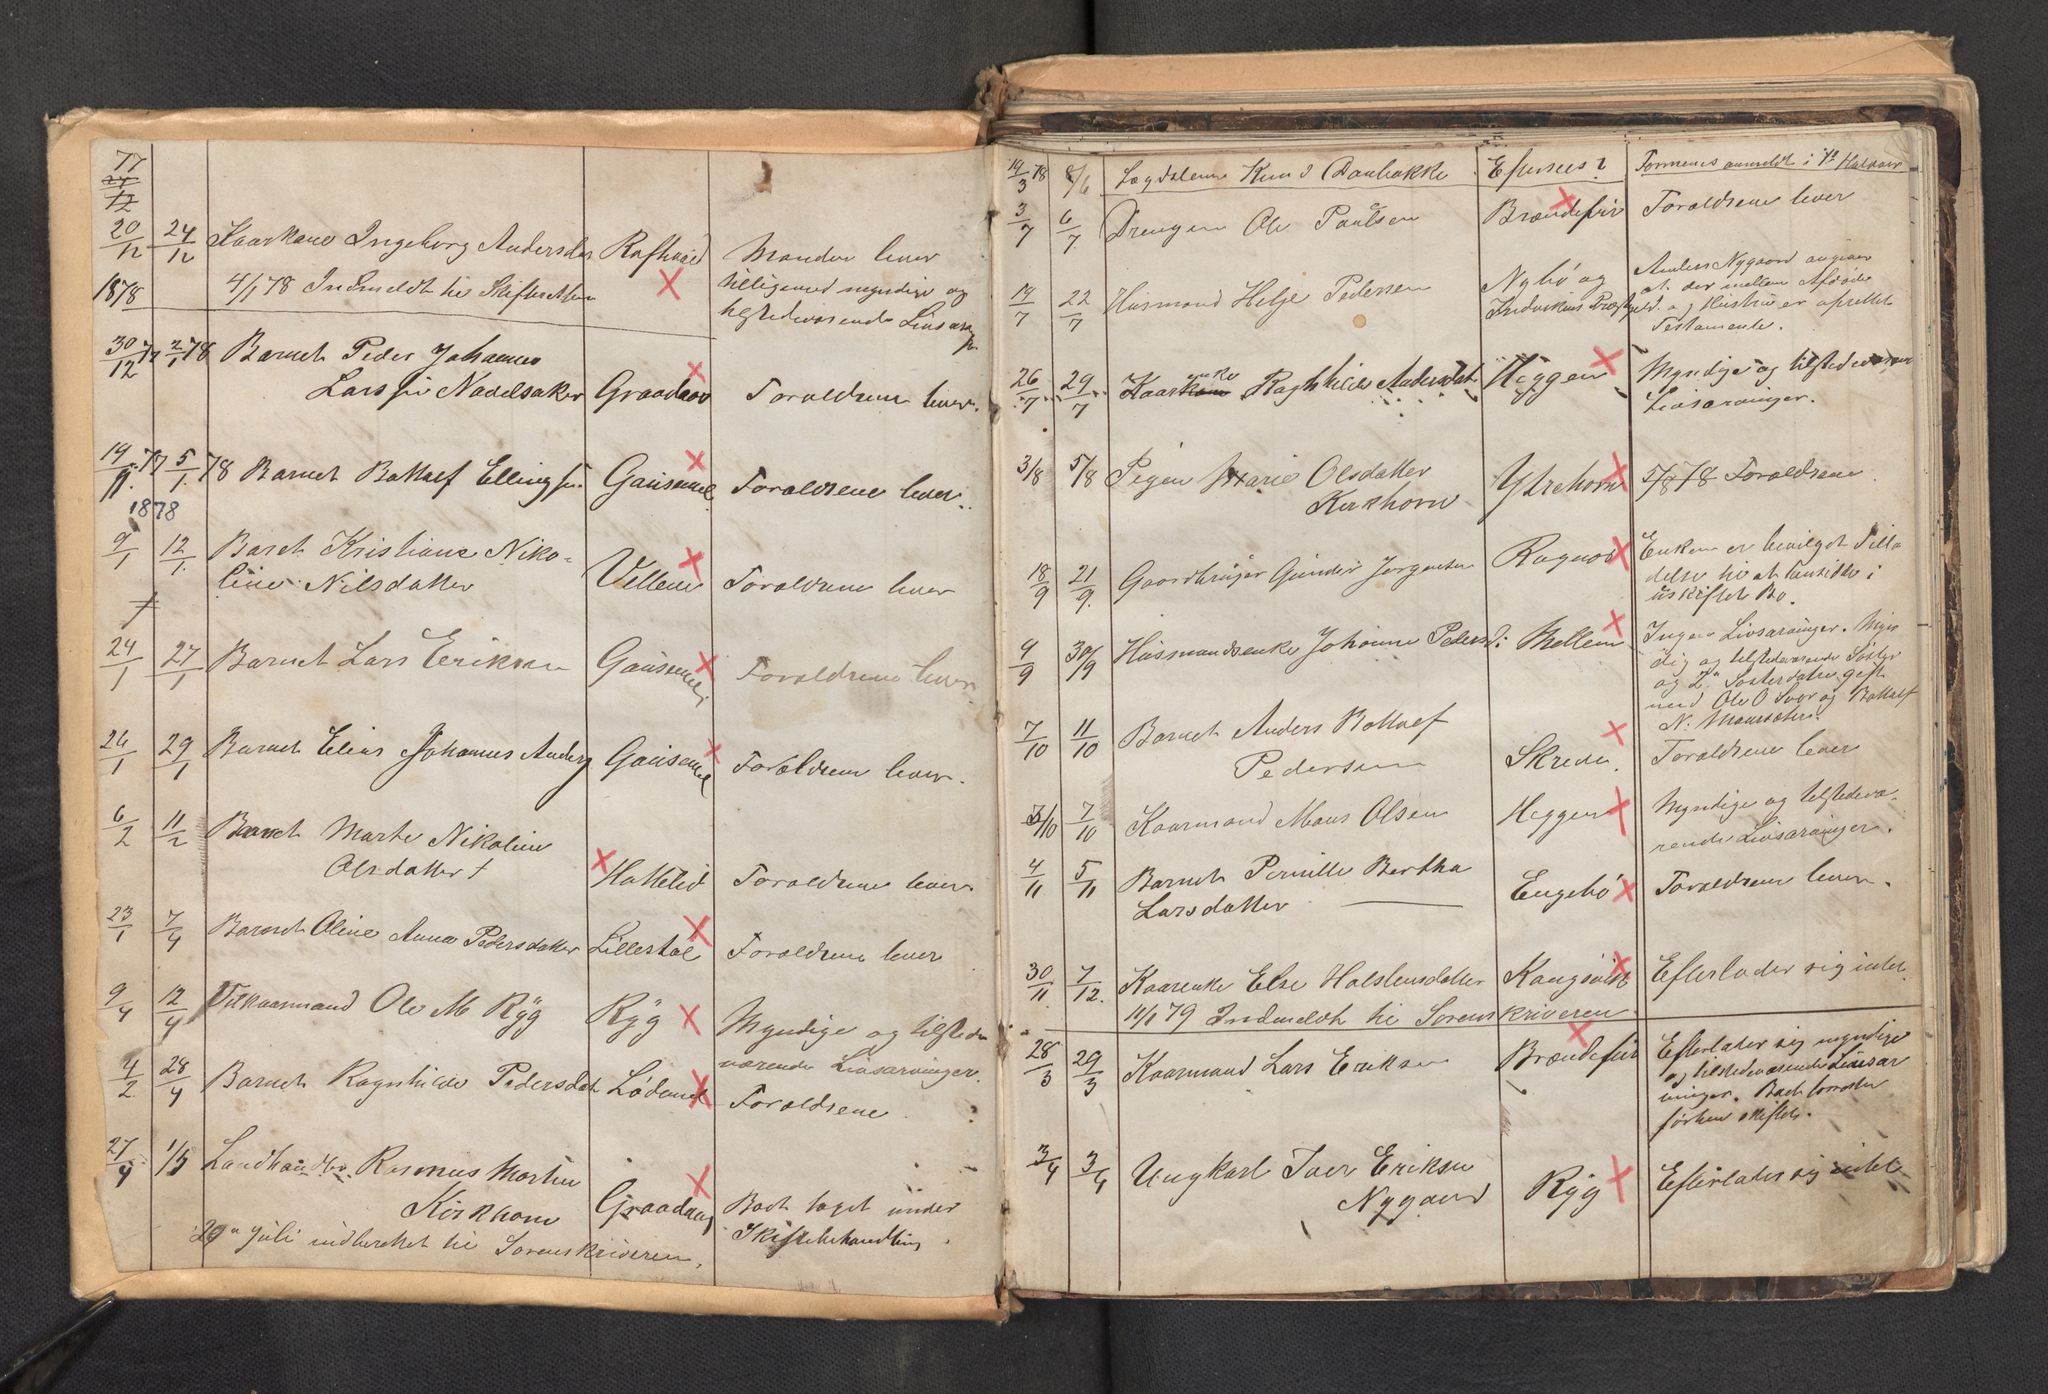 77
20/12 24/12 Kaarkone Ingeborg Andersdtr Manden lever
1878 4/1 78 Indmeldt til Skifteretten tilligemed myndige og
tilstedeværende Livsarv
30/12 77 2/1 78 Barnet Peder Johannes
Larssen Navelsaker Graadaas Forældrene lever.
19/11 77 5/1 78 Barnet Bottolf Ellingsen Gausemel Forældrene lever.
1878
9/1 12/1 Barnet Kristiane Niko-
line Nilsdatter Vellene Forældrene lever
24/1 27/1 Barnet Lars Eriksen Gausemel Forældrene lever
24/1 29/1 Barnet Elias Johannes Anders Gausemel Forældrene lever.
6/2 11/2 Barnet Marte Nikoline
Olsdatter Hattelid Forældrene lever.
23/1 7/4 Barnet Oline Anna Pedersdatter Lillestøl Forældrene lever
9/4 12/4 Ole M Ryg Ryg Myndige og tilstede
værende Livsarvinger.
4/2 28/4 Barnet Ragnhilde Pedersdt Lødemel Forældrene
27/4 1/5 Landhandler Rasmus Martin
Kirkhorn Graadaas Boet taget under
Skiftebehandling.
20de Juli indberettet til Sorenskriveren.
14/3 78 8/6 Lægdslem Knud Efterses? Formenes anmeldt i
3/7 6/7 Drengen Ole Paulsen Brændefur Forældrene lever
19/7 22/7 Husmand Helje Pedersen Nybø og Anders Nygaard angiver
Indvikens Præstegjeld. at der mellem Afdøde
og Hustru er oprettet
Testamente.
26/7 29/7 Kaarenke Raghnilde Andersdat Heggen Myndige og tilstedeværende
Livsarvinger.
3/8 5/8 Pigen Marie Olsdatter
Kirkhorn Ytrehorn 5/8 78 Forældrene
18/9 21/9 Gaardbruger Gunder Jørgensen Ragnos Enken er bevilget Tilla
delse til at hensidde i
uskiftet Bo.
9/9 30/9 Husmandsenke Johanne Pedersd: Mellem Ingen Livsarvinger. Myn
dig og tilstedeværende Søster
og 2 Søsterdøtre gift
med Ole O Svor og Bottolf
N. Maurseter.
7/10 11/10 Barnet Anders Bottolf
Pedersen Skrede. Forældrene lever
3/10 7/10 Kaarmand Mons Olsen Heggen Myndige og tilstedevæ-
rende Livsarvinger.
4/11 5/11 Barnet Pernille Bertha
Larsdatter Engebø Forældrene lever.
30/11 7/12. Kaarenke Else Halstensdatter Efterlader sig intet.
11/1 79 Indmeldt til Sorenskriveren
28/3 29/3 Kaarmand Lars Eriksen Brændefur Efterlater sig myndige
og tilstedeværende Livsar
vinger. Boet
førhen skiftet.
3/4 3/4 Ungkarl Iver Eriksen
Nygaard Ryg Efterlater sig intet